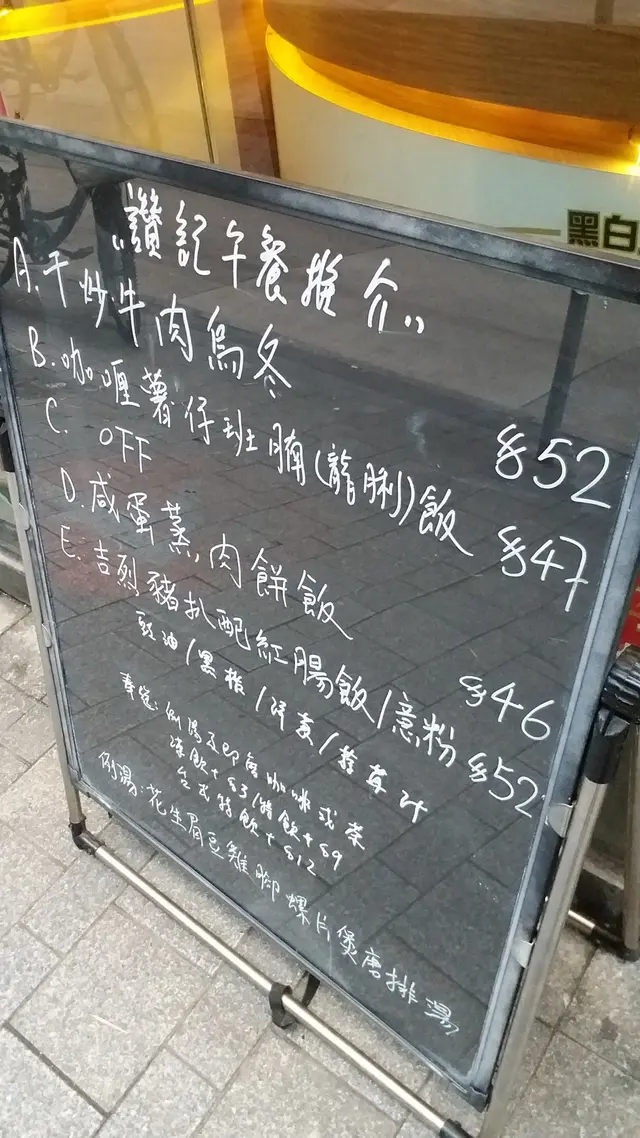 黑白
"讚記午餐推介"
A.干炒牛肉烏冬 $52
B.咖喱薯仔班腩(龍脷)飯 $47
C. OFF
D.咸蛋蒸肉餅飯 $46
E.吉烈豬扒配紅腸飯/意粉 $52
豉油/黑椒/汁
奉送:例湯及即磨咖啡或茶
凍飲+$3/特飲+$9
台式特飲+$12
例湯:花生眉豆雞腳螺片煲唐排湯